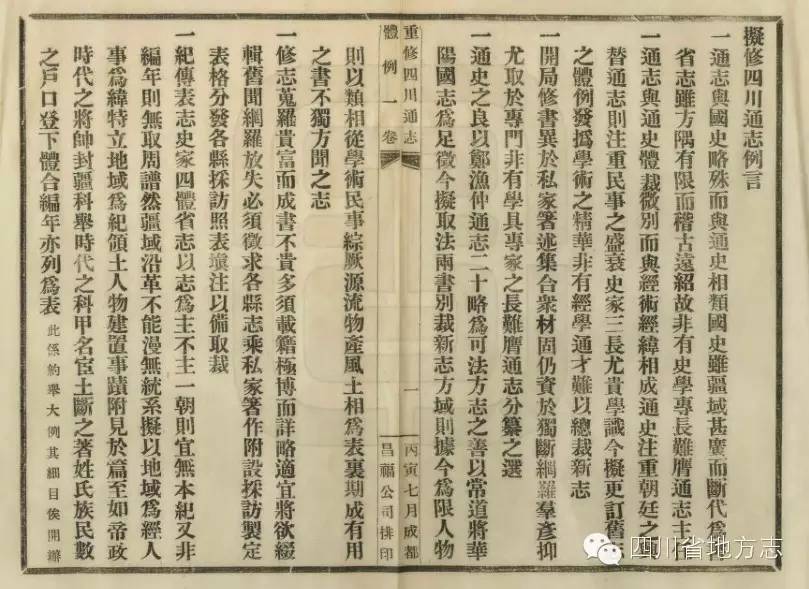 擬修四川通志例言
一通志與國史略殊而與通史相類國史雖疆域甚廣而斷代為
省志雖方隅有限而稽古遠紹故非有史學專長難膺通志主任
一通志與通史體裁微別而與經術經緯相成通史注重朝廷之
替通志則注重民事之盛衰史家三長尤貴學識今擬更訂舊
之體例發撝學術之精華非有經學通才難以總裁新志
一開局修書異於私家箸述集合衆材固仍資於獨斷網羅羣彥抑
尤取於專門非有學具專家之長難膺通志分纂之選
一通史之良以鄭漁仲通志二十略為可法方志之善以常道將華
陽國志為足徵今擬取法兩書別裁新志方域則據今為限人物
重修四川通志
體例一卷
一
丙寅七月成都
昌福公司排印
則以類相從學術民事綜厥源流物產風土相為表裏期成有用
之書不獨方聞之志
一修志蒐羅貴富而成書不貴多須載籍極博而詳略適宜將欲綴
輯舊聞網羅放失必須徵求各縣志乘私家箸作附設採訪製定
表格分發各縣採訪照表塡注以備取裁
一紀傳表志史家四體省志以志為主不主一朝則宜無本紀又非
編年則無取周譜然疆域沿革不能漫無統系擬以地域為經人
事為緯特立地域為紀領土人物建置事蹟附見於篇至如帝政
時代之將帥封疆科舉時代之科甲名宦土斷之著姓氏族民數
之戶口登下體合編年亦列為表 此係約舉大例其細目俟開辦
四川省地方志